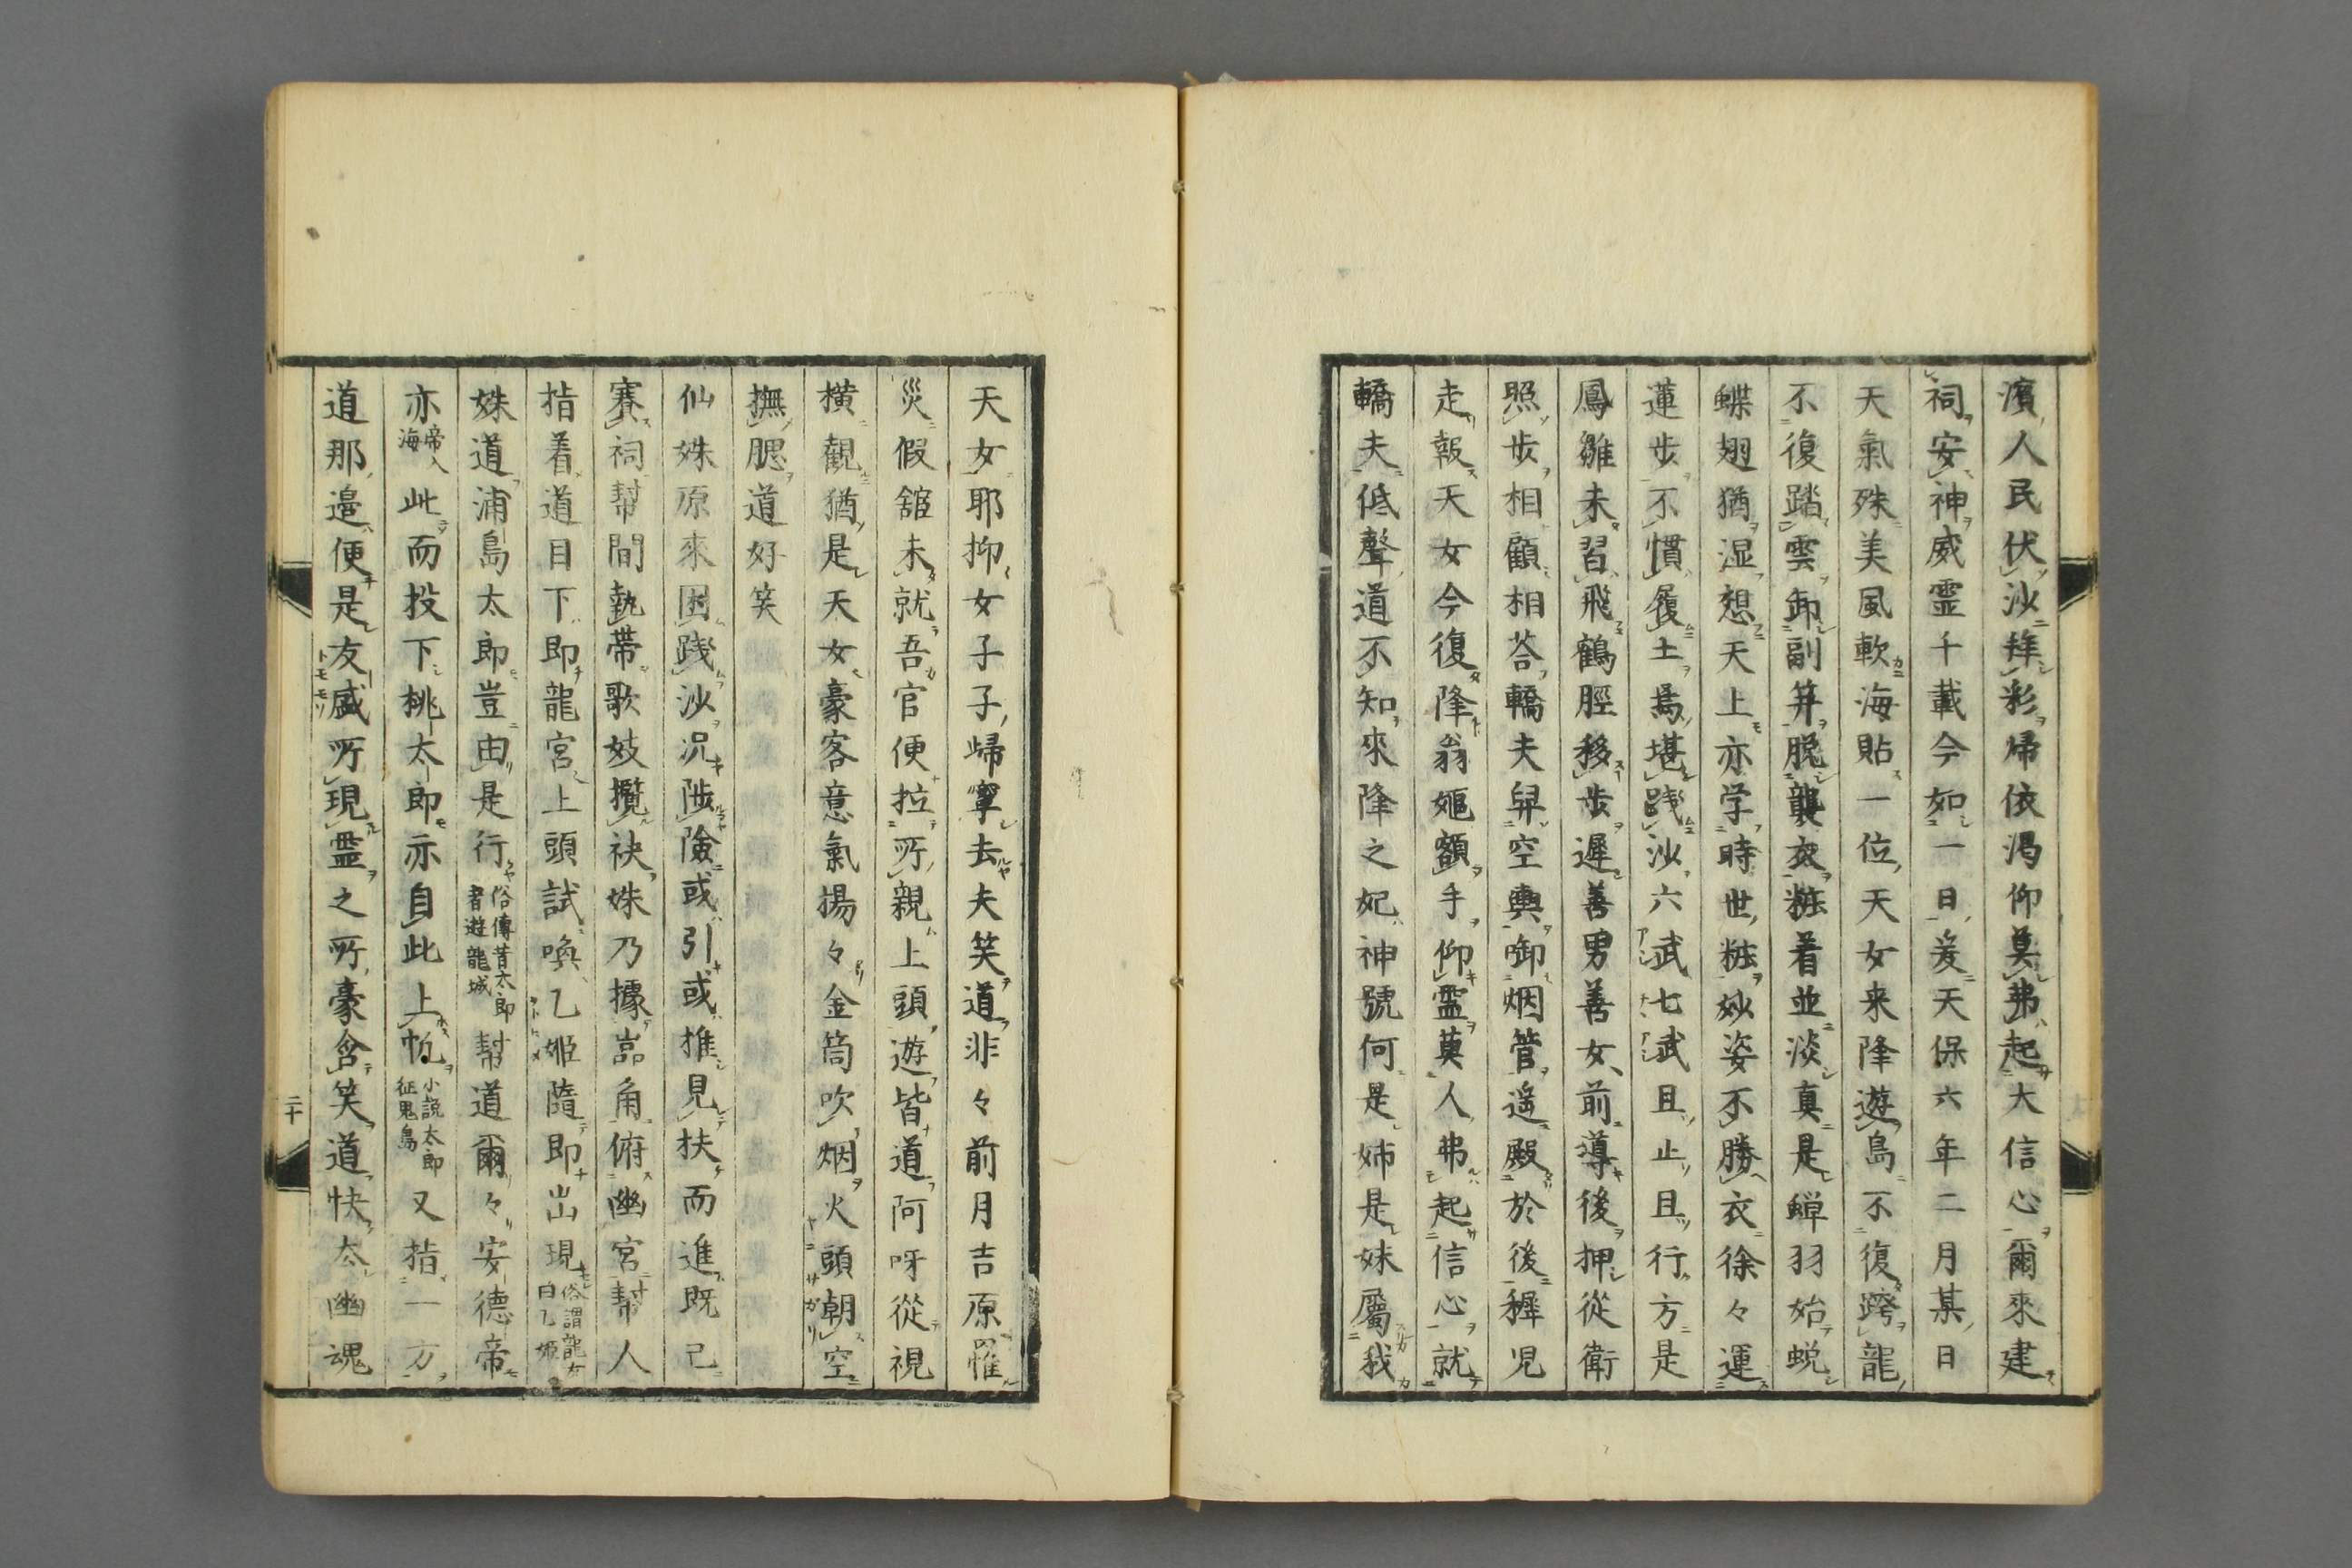 濱人民伏沙拜彩帰依渇仰莫弗起大信心爾來建
祠安神威霊千載今如一日爰天保六年二月某日
天氣殊美風軟海貼一位天女来降遊島不復跨龍
不復踏雲卸副笄脱襲衣粧着並淡真是蝉羽始蛻
蝶翅猶湿想天上亦学時世粧妙姿不勝衣徐々運
蓮歩不慣履土焉堪践沙六武七武且止且行方是
鳳雛未習飛鶴脛移歩遲善男善女前導後押從衛
照歩相顧相荅轎夫舁空輿啣烟管遥殿於後穉児
走報天女今復降翁嫗額手仰霊莫人弗起信心就
轎夫低聲道不知來降之妃神號何是姉是妹屬我
天女耶抑女子子帰寧去夫笑道非々前月吉原罹
災假舘未就吾官便拉所親上頭遊皆道阿呀從視
横觀猶是天女豪客意氣揚々金筒吹烟火頭朝空
撫腮道好笑
仙姝原來困践沙况陟險或引或推見扶而進既已
賽祠幇間執帯歌妓攬袂姝乃據嵓角俯幽宮幇人
指着道目下即龍宮上頭試喚乙姫隨即出現俗謂龍女曰乙姫
姝道浦島太郎豈由是行俗傳昔太郎者遊龍城幇道爾々安德帝
亦帝入海此而投下桃太郎亦自此上帆小説太郎征鬼島又指一方
道那邉便是友盛所現霊之所豪含笑道快太幽魂
二十